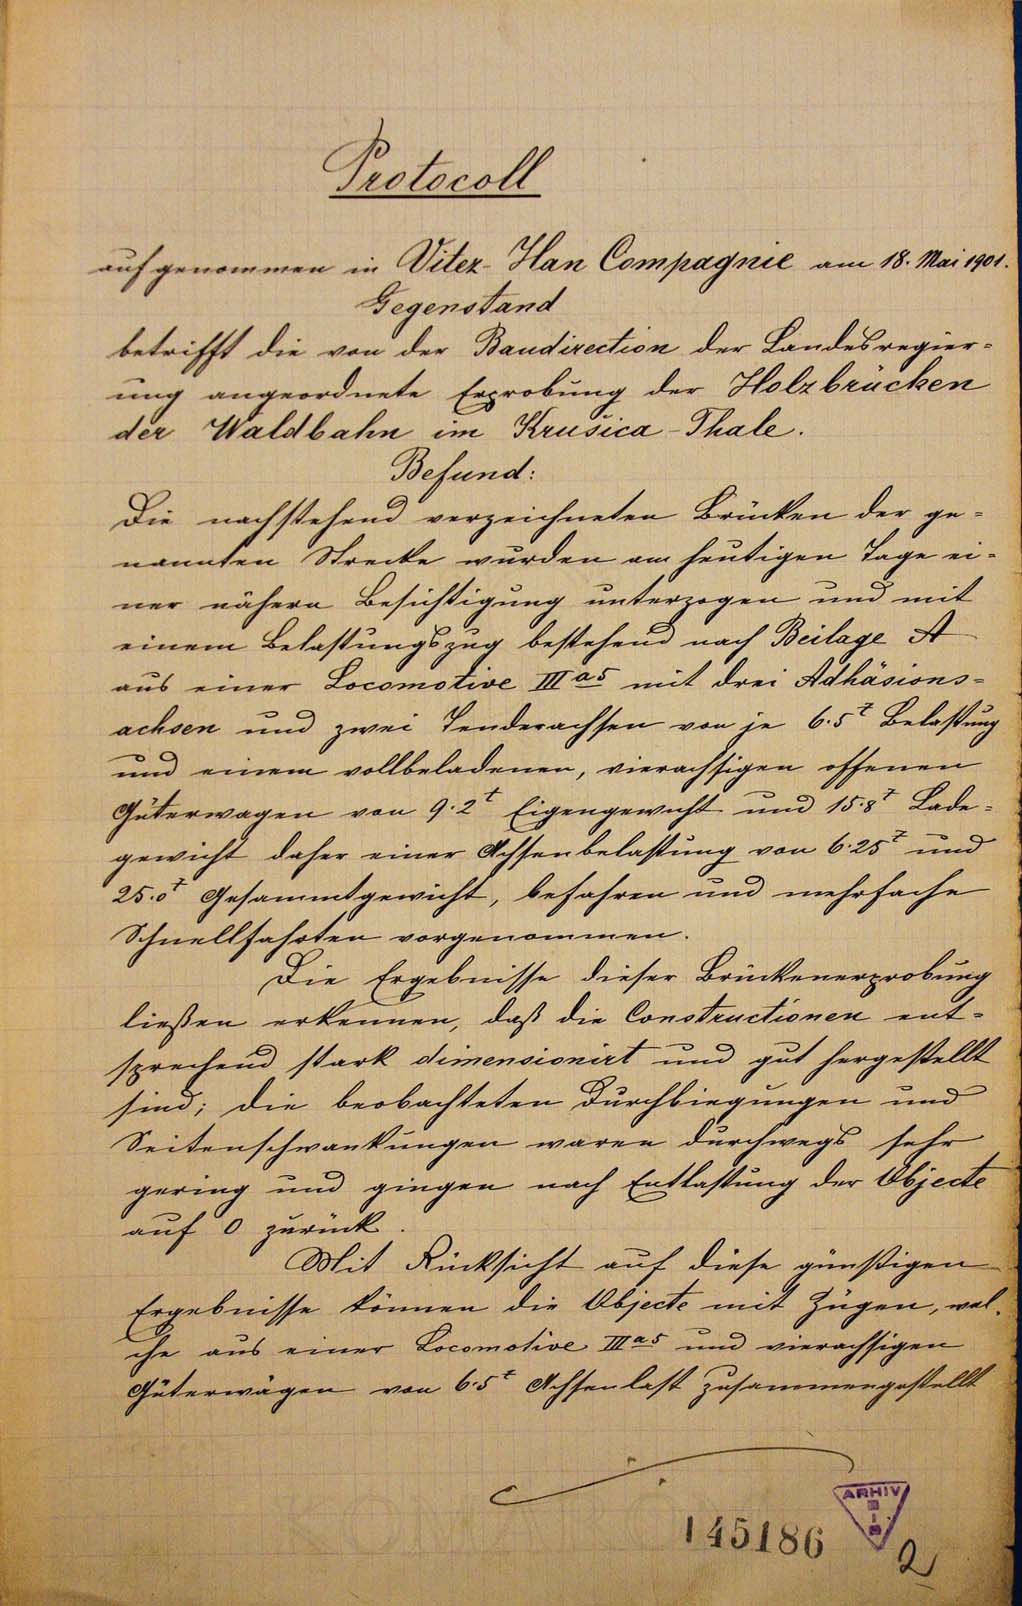 Protocoll
aufgenommen in Vitez-Han Compagnie am 18. Mai 1901.
Gegenstand
betrifft die von der Baudirection der Landesregier=
ung angeordnete Erprobung der Holzbrücken
der Waldbahn im Krušica-Thale.
Befund:
Die nachstehend verzeichneten Brücken der ge=
nannten Strecke wurden am heutigen Tage ei=
ner nähern Besichtigung unterzogen und mit
einem Belastungszug bestehend nach Beilage A
aus einer Locomotive III a5 mit drei Adhäsions=
achsen und zwei Tenderachsen von je 6.5t Belastung
und einem vollbeladenen, vierachsigen offenen
Güterwagen von 9.2t Eigengewicht und 15.8t Lade=
gewicht daher einer Achsenbelastung von 6.25t und
25.0t Gesammtgewicht, befahren und mehrfache
Schnellfahrten vorgenommen.
Die Ergebnisse dieser Brückenerprobung
ließen erkennen, daß die Constructionen ent=
sprechend stark dimensionirt und gut hergestellt
sind; die beobachteten Durchbiegungen und
Seitenschwankungen waren durchwegs sehr
gering und gingen nach Entlastung der Objecte
auf 0 zurück.
Mit Rücksicht auf diese günstigen
Ergebnisse können die Objecte mit Zügen, wel=
che aus einer Locomotive III a5 und vierachsigen
Güterwägen von 6.5t Achsenlast zusammengestellt
145186
ARHIV
BIH
2